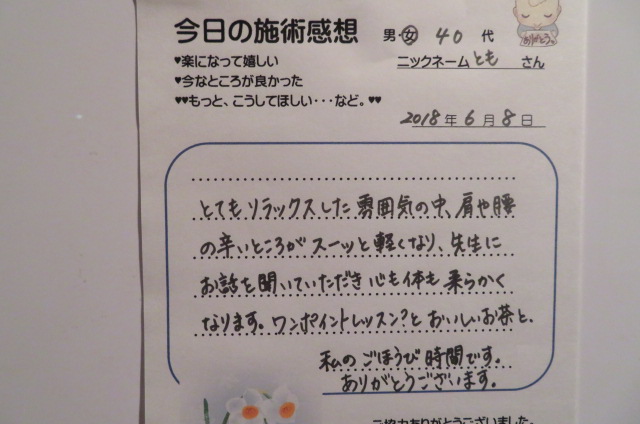 今日の施術感想 男 女 40 代
ありがとう。
♥楽になって嬉しい
ニックネーム とも さん
♥今なところが良かった
♥♥もっと、こうしてほしい・・・など。♥♥
2018 年 6 月 8 日
とてもリラックスした雰囲気の中、肩や腰
の辛いところがスーッと軽くなり、先生に
お話を聞いていただき心も体も柔らかく
なります。ワンポイントレッスン?とおいしいお茶と、
私のごほうび時間です。
ありがとうございます。
ご協力ありがとうございました。